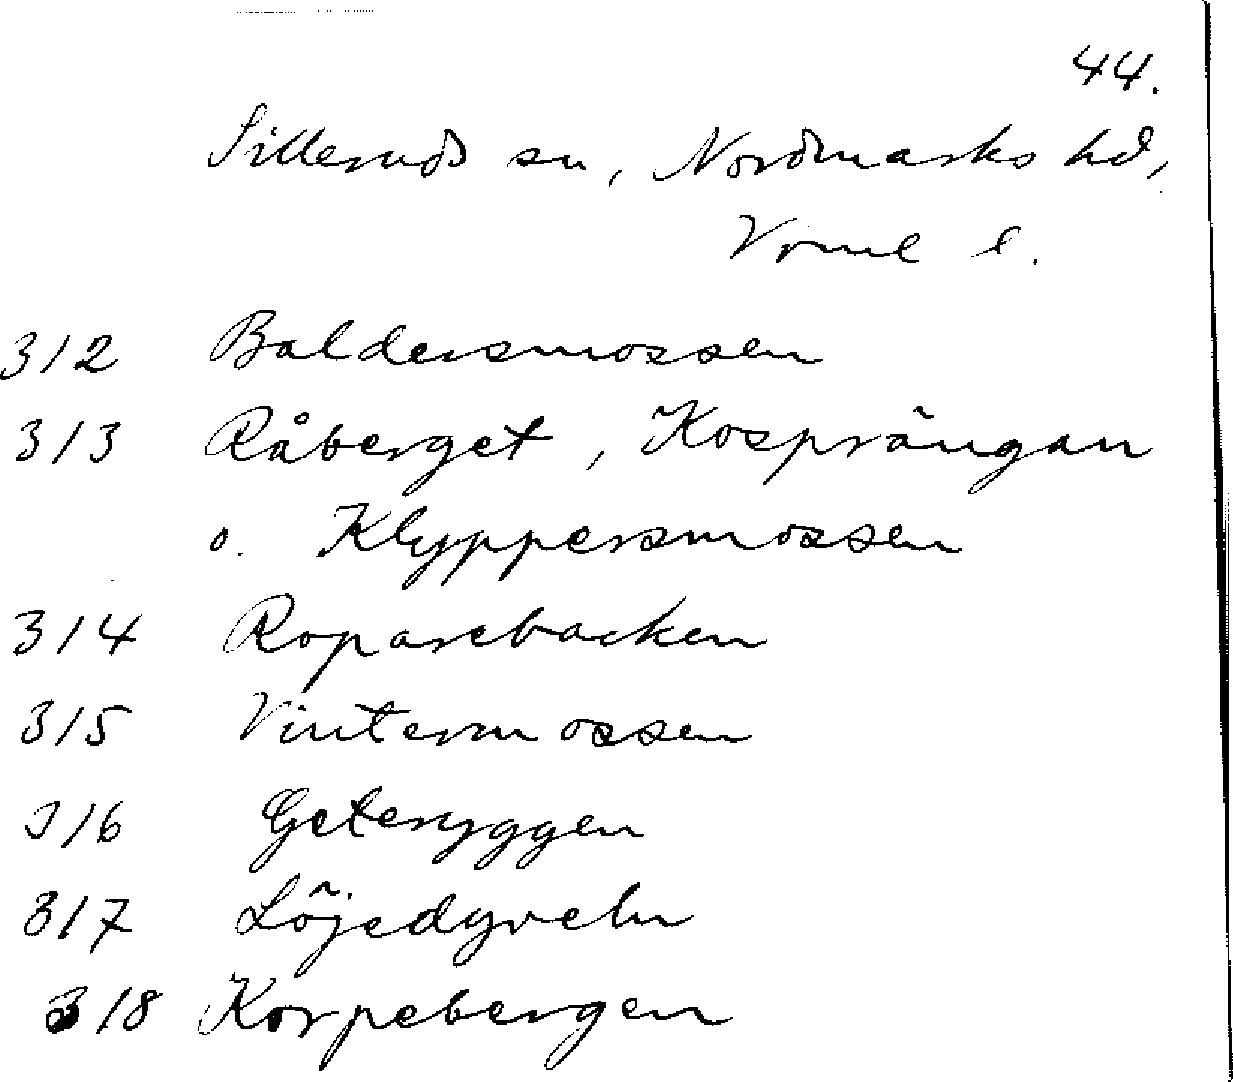 44.
Silleruds sn, Nordmarks hd,
Vrml l.
312 Baldersmossen
313 Råberget, Kosprängan
o. Klyppersmossen
314 Roparebacken
315 Vintermossen
316 Geteryggen
317 Löjedyveln
318 Korpebergen